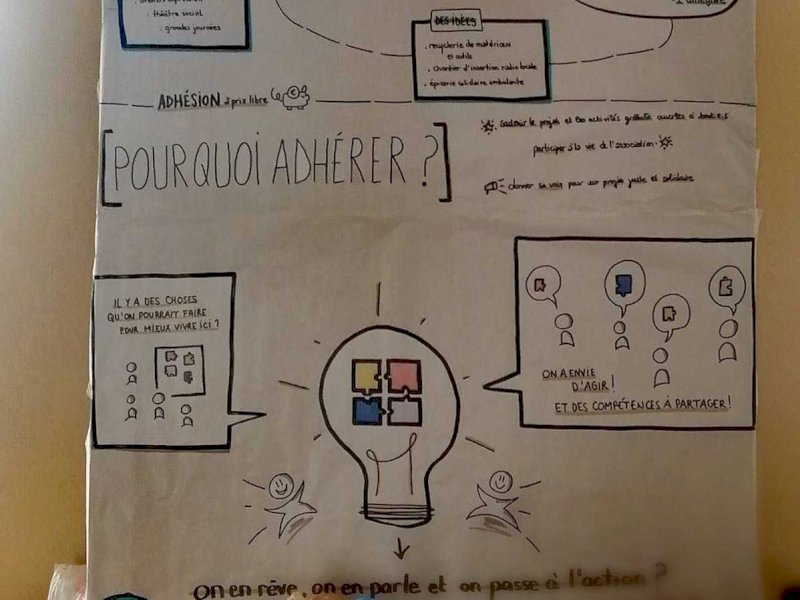 théâtre social
grandes journées
DES IDÉES
. recyclerie de matériaux
et outils
. chantier d'insertion radio locale
. épicerie solidaire ambulante
ADHÉSION à prix libre
€
[POURQUOI ADHÉRER ?]
soutenir le projet et les activités gratuite ouvertes à tout.e.s
participer à la vie de l'association
donner sa voix pour un projet juste et solidaire
IL Y A DES CHOSES
QU'ON POURRAIT FAIRE
POUR MIEUX VIVRE ICI ?
ON A ENVIE
D'AGIR !
ET DES COMPÉTENCES À PARTAGER !
on en rêve, on en parle et on passe à l'action ?